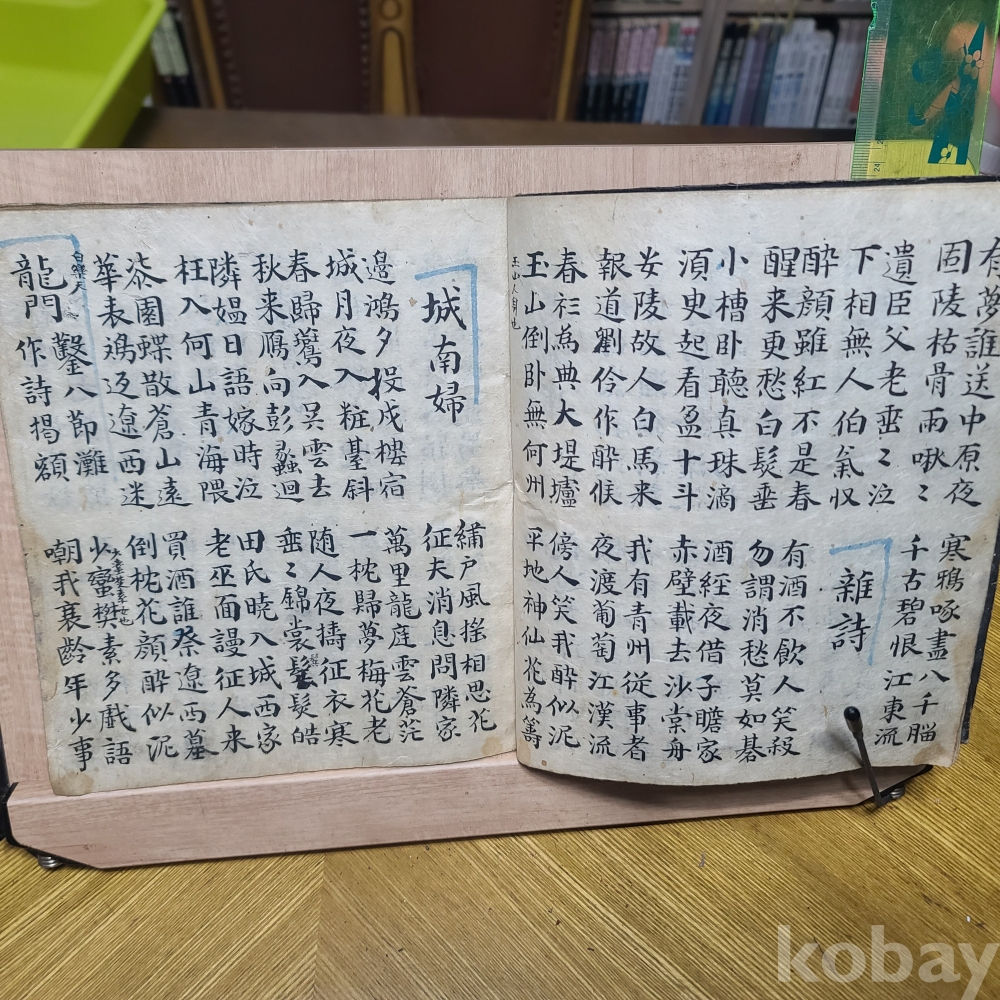 有夢誰送中原夜
固陵枯骨雨啾〻
遺臣父老垂〻泣
下相無人伯氣収
寒鴉啄盡八千腦
千古碧恨江東流
雜詩
醉顔雖紅不是春
醒来更愁白髮垂
小槽卧聽真珠滴
湏史起看盈十斗
安陵故人白馬来
報道劉伶作醉候
春衫為典大堤壚
玉山倒卧無何州
有酒不飲人笑殺
勿謂消愁莫如碁
酒經夜借子瞻家
赤壁載去沙棠舟
我有青州従事者
夜渡葡萄江漢流
傍人笑我醉似泥
平地神仙花為籌
城南婦
邊鴻夕投戍樓宿
城月夜入粧䑓斜
春歸鶯入吴雲去
秋来鴈向彭蠡迴
隣媼日語嫁時泣
枉入何山青海隈
茶園蝶散蒼山遠
華表鴻返遼西迷
白樂天
龍門鑿八節灘
作詩揭額
繡戸風摇相思花
征夫消息問隣家
萬里龍庭雲蒼茫
一枕歸夢梅花老
随人夜擣征衣寒
垂〻錦裳髮皓
田氏曉入城西家
老巫面謾征人来
買酒誰祭遼西墓
倒枕花顔醉似泥
少蠻樊素多戱語
嘲我衰齡年少事
kobay